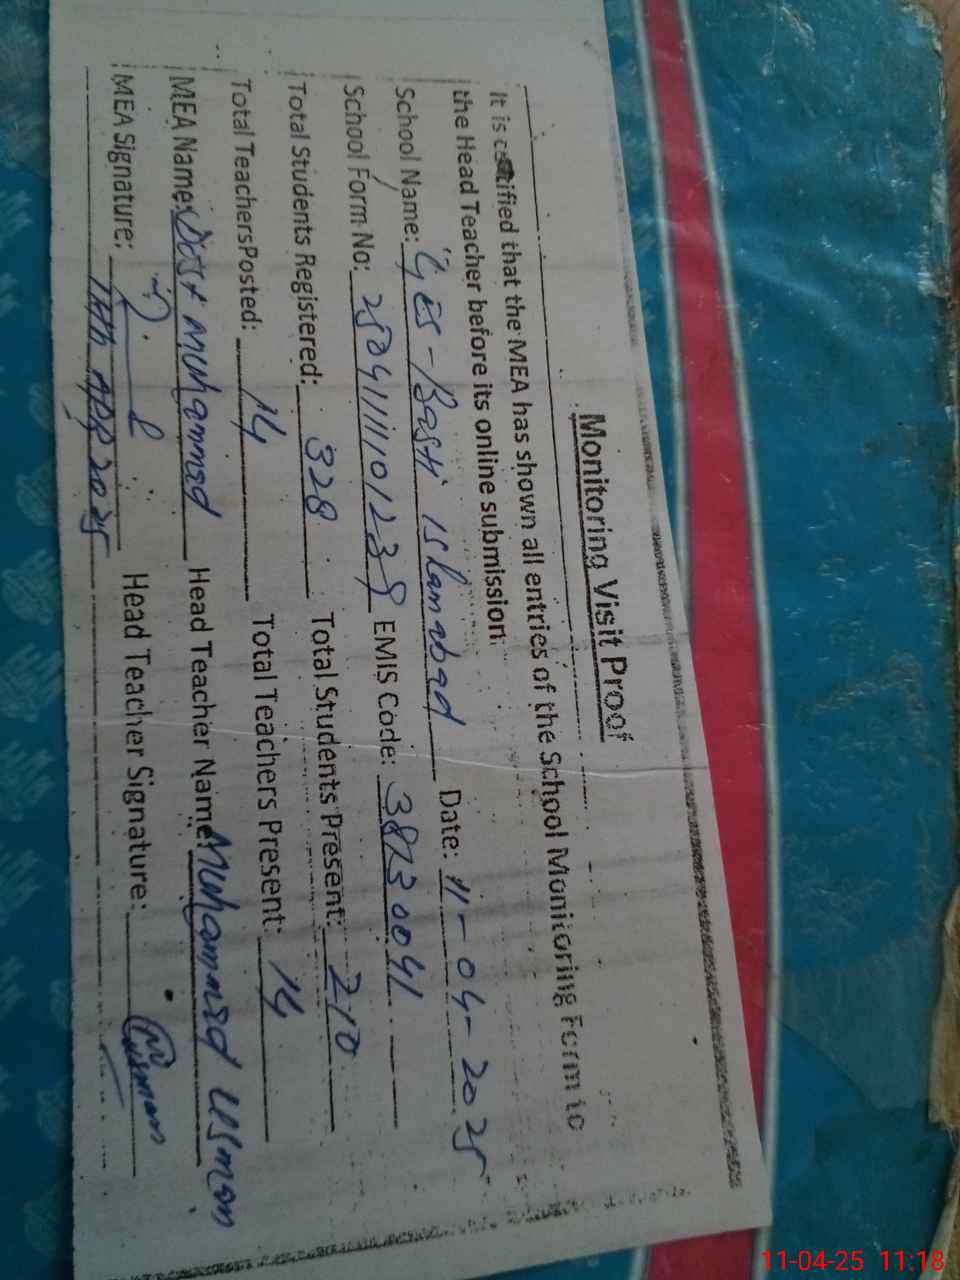 Monitoring Visit Proof
It is certified that the MEA has shown all entries of the School Monitoring Form to
the Head Teacher before its online submission.
School Name: GES-Basti Islamabad Date: 11-04-2025
School Form No: EMIS Code:
Total Students Registered: 328 Total Students Present: 210
Total TeachersPosted: 14 Total Teachers Present: 14
MEA Name: Dost Muhammad Head Teacher Name: Muhammad Usman
MEA Signature: Head Teacher Signature: Usman
APR 2025
11-04-25 11:18